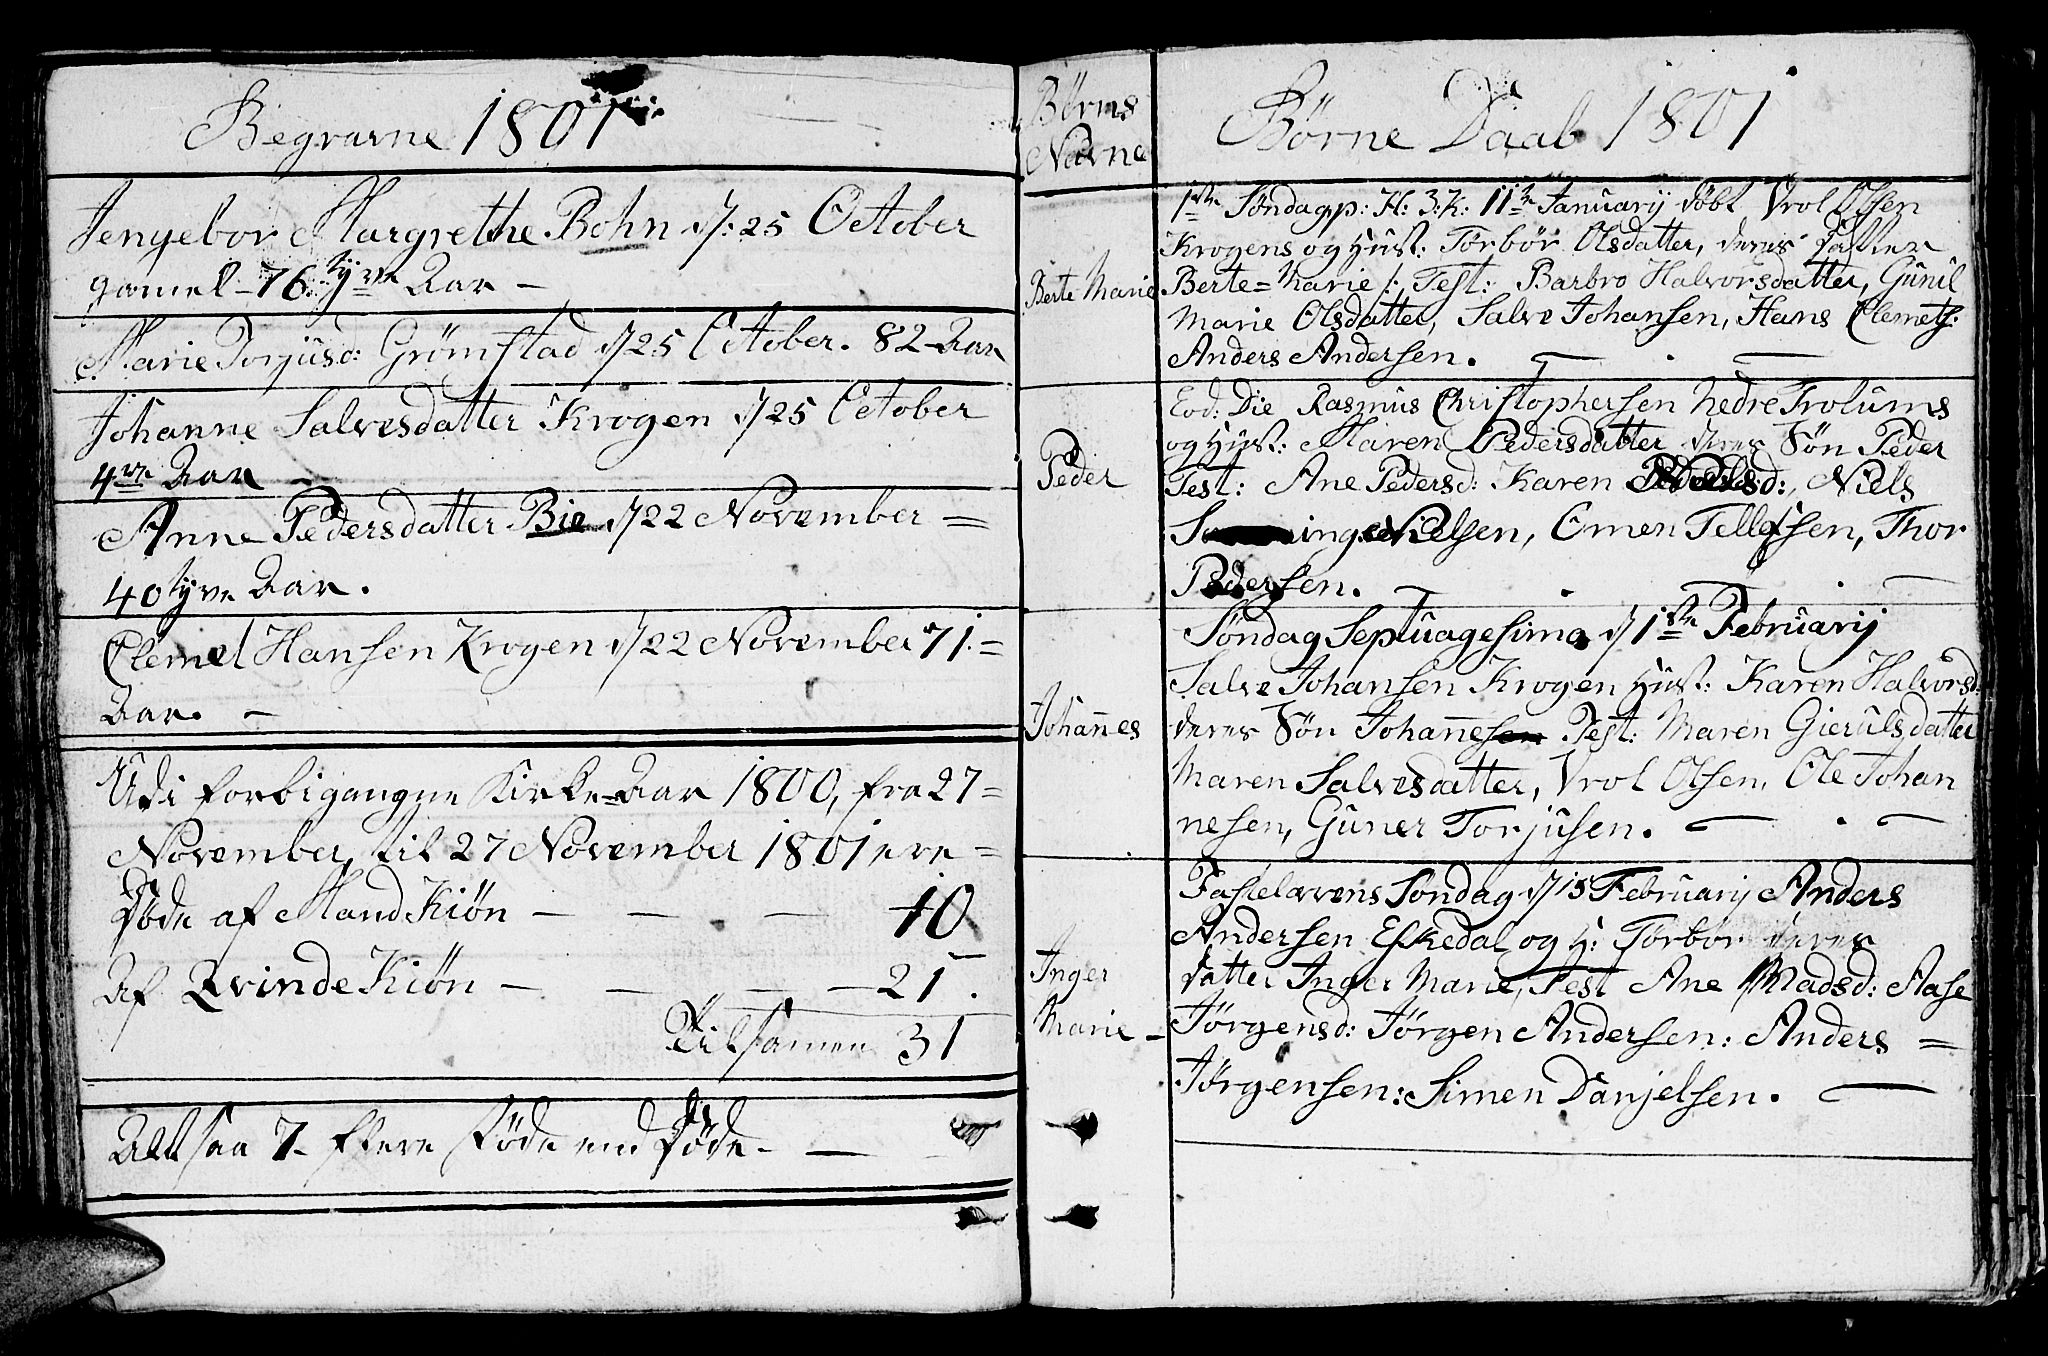 Begravne 1801
Jengebor Margrethe Bohn d: 25 October
gamel - 76 tyve Aar -
Marie Torjusd: Grømstad d 25 October. 82 - Aar
Johanne Salvesdatter Krogen d 25 October
4re Aar -
Anne Pedersdatter Bie d 22 November =
40 tyve Aar.
Clemet Hansen Krogen d 22 November 71. =
Aar. -
Udi forbigangne Kirke-Aar 1800, fra 27 =
November, til 27 November 1801 ere =
Døde af Mand Kiøn - - - 10
Af Qvinde Kiøn - - - - 21.
Tilsamen 31
Altsaa 7 flere Føde end Døde. -
Børns
Navne
Børne Daab 1801
1ste Søndag p: H: 3: K: 11te January døbt Vrol Olsen
Krogens og Hust: Torbør Olsdatter, deres Datter
Berte Marie
Berte = Marie /: Test: Barbro Halvorsdatter, Gunil
Marie Olsdatter, Salve Johansen, Hans Clemets:
Anders Andersen. - . -
Eod: Die Rasmus Christophersen Nedre Trolums
og Hust: Maren Pedersdatter deres Søn Peder
Peder
Test: Ane Pedersd: Karen Nielsd:, Niels
Nielsen, Omen Tellefsen, Thor
Pedersen. - . -
Søndag Septuagesima d 1ste Februarij
Salve Johansen Krogen Hust: Karen Halvorsd:
Johannes
deres Søn Johannes Test: Maren Gierulsdatter
Maren Salvesdatter, Vrol Olsen, Ole Johan
nesen, Guner Torjusen. - . -
Fastelavens Søndag d 15 Februarij Anders
Andersen Eskedal og H: Torbor deres
Inger
Datter Inger Marie, Test Ane Madsd: Aase
Marie -
Jørgensd: Jørgen Andersen: Anders =
Jørgensen: Simen Danjelsen. -